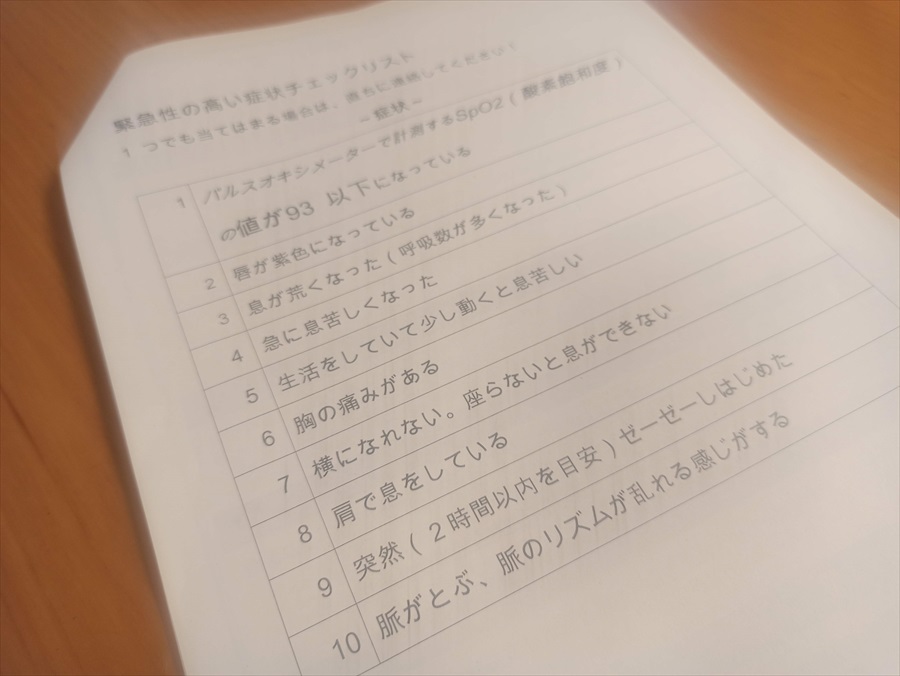 緊急性の高い症状チェックリスト
1つでも当てはまる場合は、直ちに連絡してください!
~症状~
1 パルスオキシメーターで計測するSpO2(酸素飽和度)
の値が93 以下になっている
2 唇が紫色になっている
3 息が荒くなった(呼吸数が多くなった)
4 急に息苦しくなった
5 生活をしていて少し動くと息苦しい
6 胸の痛みがある
7 横になれない。座らないと息ができない
8 肩で息をしている
9 突然(2時間以内を目安)ゼーゼーしはじめた
10 脈がとぶ、脈のリズムが乱れる感じがする